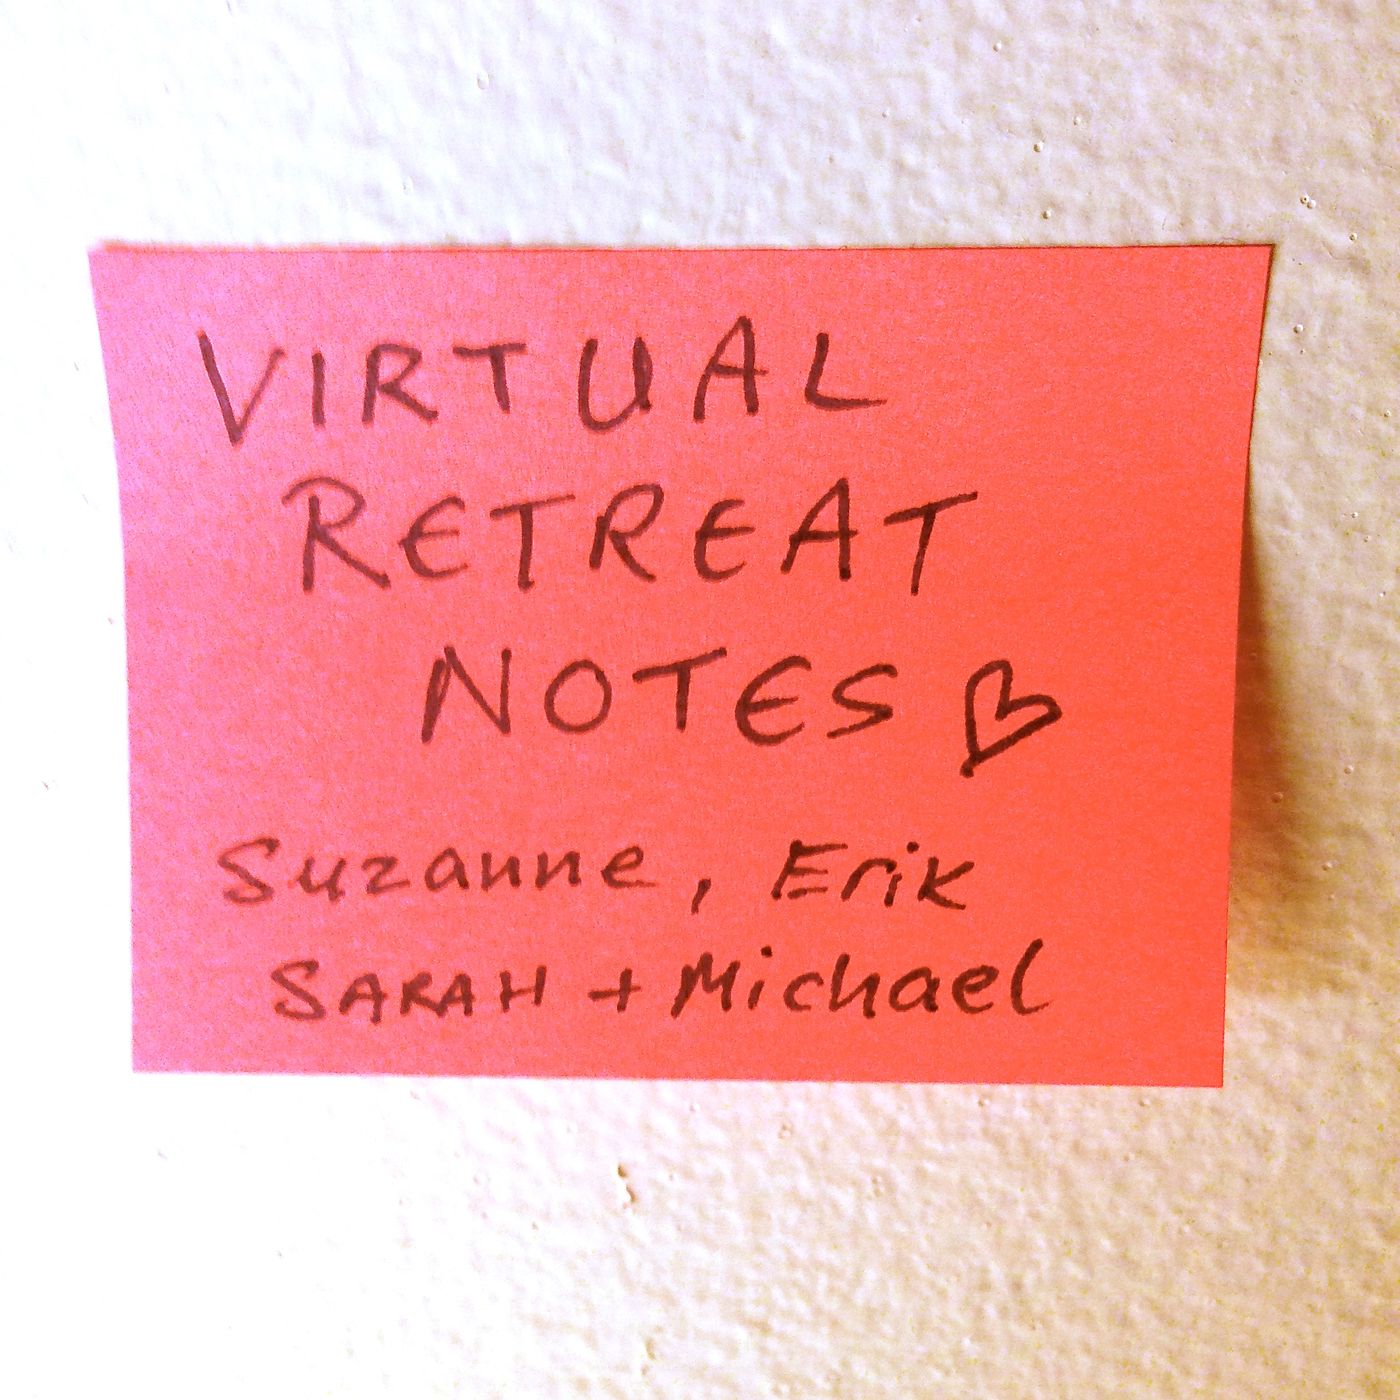 VIRTUAL
RETREAT
NOTES ♡
Suzanne, Erik
SARAH + Michael